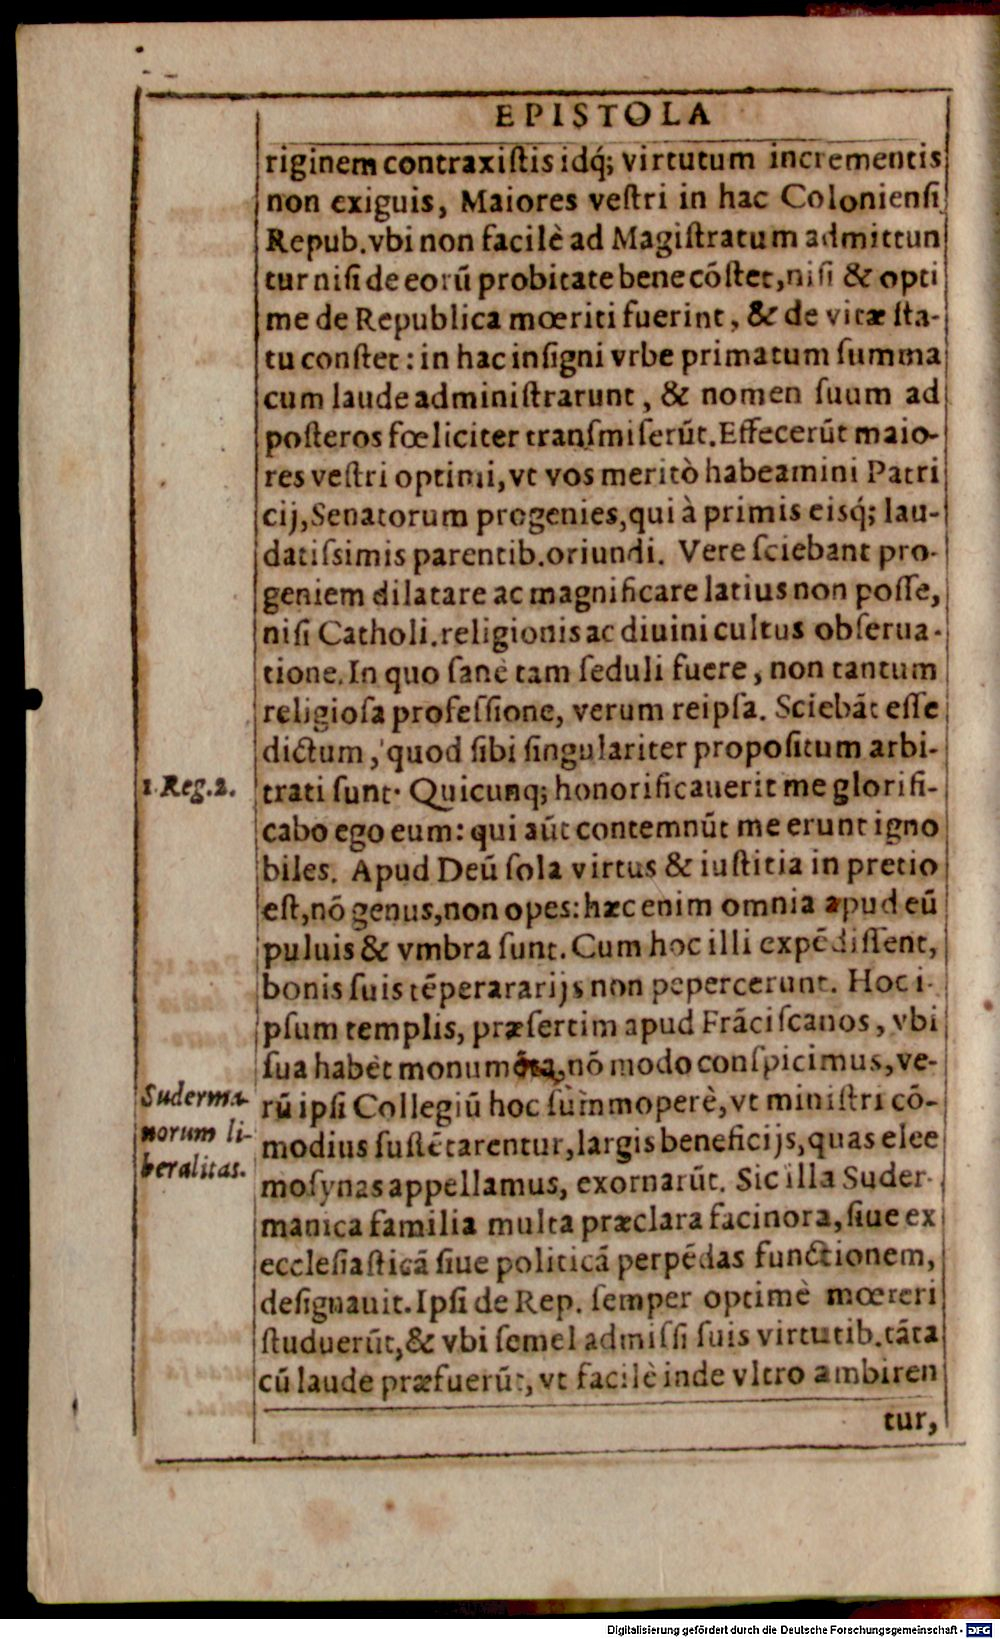 EPISTOLA
riginem contraxiſtis idq́; virtutum incrementis
non exiguis, Maiores veſtri in hac Colonienſi
Repub. vbi non facilè ad Magiſtratum admittun
tur niſi de eorū probitate bene cōſtet, niſi & opti
me de Republica mœriti fuerint, & de vitæ ſta-
tu conſtet: in hac inſigni vrbe primatum ſumma
cum laude adminiſtrarunt, & nomen ſuum ad
poſteros fœliciter tranſmiſerūt. Effecerūt maio-
res veſtri optimi, vt vos meritò habeamini Patri
cij, Senatorum progenies, qui à primis eisq́; lau-
datiſsimis parentib. oriundi. Vere ſciebant pro-
geniem dilatare ac magnificare latius non poſſe,
niſi Catholi. religionis ac diuini cultus obſerua-
tione. In quo ſanè tam ſeduli fuere, non tantum
religioſa profeſsione, verum reipſa. Sciebāt eſſe
dictum, quod ſibi ſingulariter propoſitum arbi-
1. Reg. 2.
trati ſunt. Quicunq; honorificauerit me glorifi-
cabo ego eum: qui aūt contemnūt me erunt igno
biles. Apud Deū ſola virtus & iuſtitia in pretio
eſt, nō genus, non opes: hæc enim omnia apud eū
puluis & vmbra ſunt. Cum hoc illi expēdiſſent,
bonis ſuis tēperararijs non pepercerunt. Hoc i-
pſum templis, præſertim apud Frāciſcanos, vbi
ſua habēt monumēta, nō modo conſpicimus, ve-
Suderma-
norum li-
beralitas.
rū ipſi Collegiū hoc ſummoperè, vt miniſtri cō-
modius ſuſtētarentur, largis beneficijs, quas elee
moſynas appellamus, exornarūt. Sic illa Suder-
manica familia multa præclara facinora, ſiue ex
eccleſiaſticā ſiue politicā perpēdas functionem,
deſignauit. Ipſi de Rep. ſemper optimè mœreri
ſtuduerūt, & vbi ſemel admiſsi ſuis virtutib. tāta
cū laude præfuerūt, vt facilè inde vltro ambiren
tur,
Digitalisierung gefördert durch die Deutsche Forschungsgemeinschaft - DFG